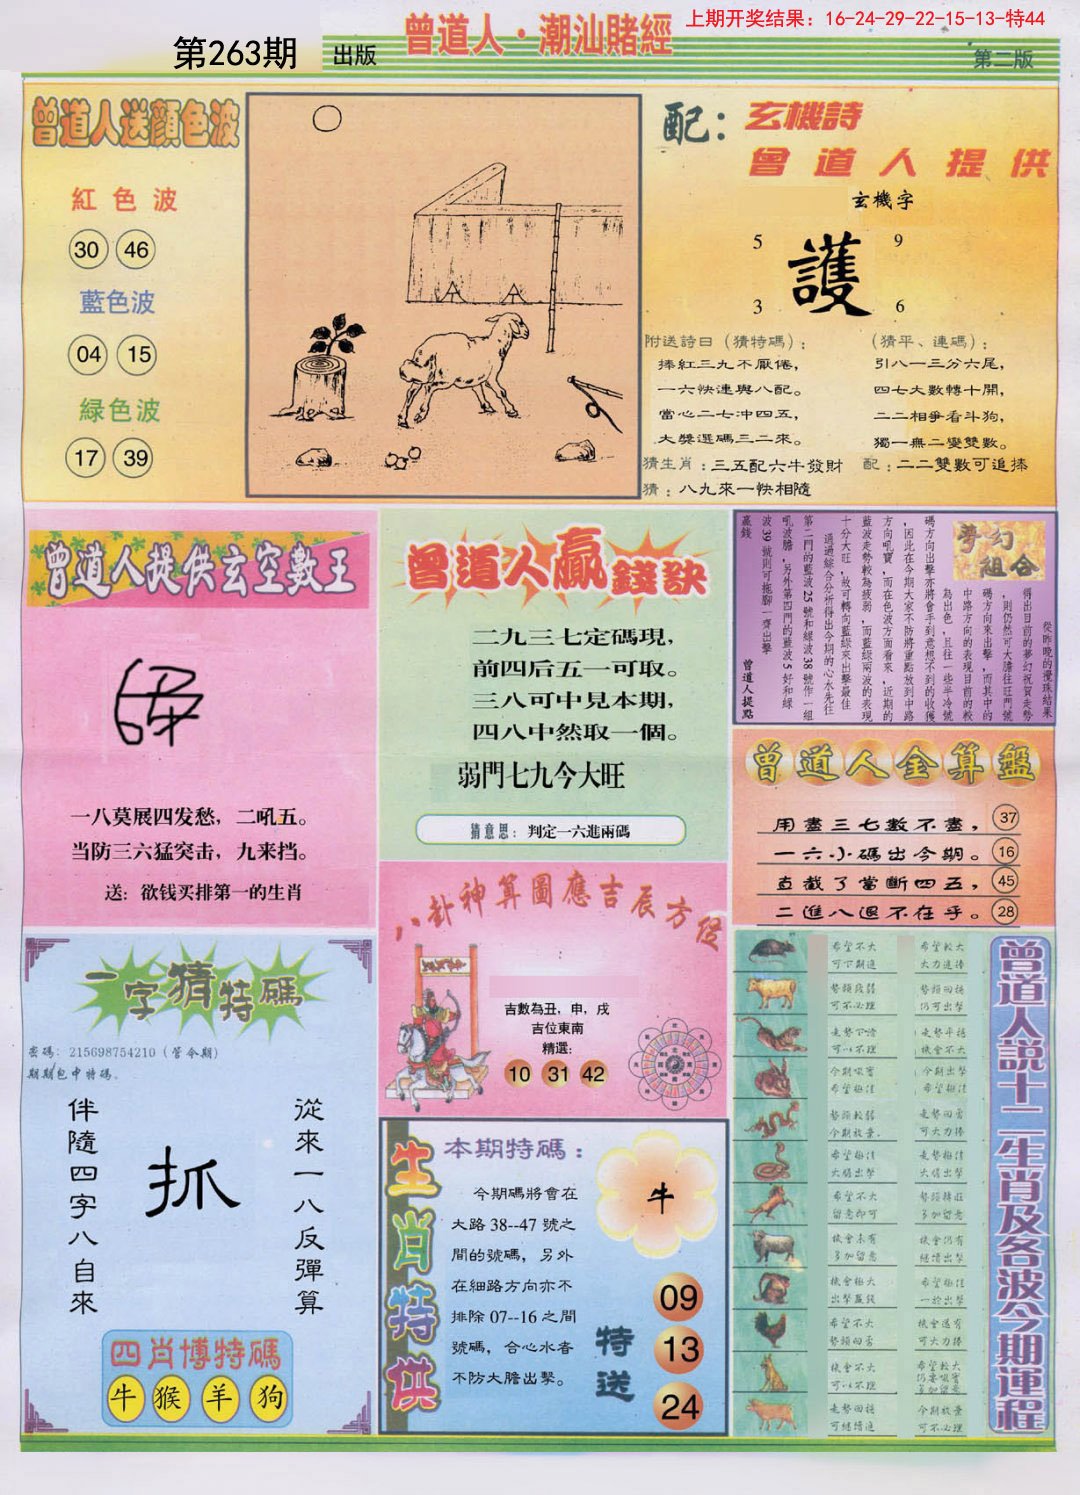 上期开奖结果：16-24-29-22-15-13-特44
第263期
出版
曾道人·潮汕賭經
第二版
曾道人送顏色波
紅色波
30 46
藍色波
04 15
緑色波
17 39
配：玄機詩
曾道人提供
玄機字
5 9
護
3 6
附送詩曰（猜特碼）：
捧紅三九不厭倦，
一六快連與八配。
當心二七冲四五，
大獎選碼三二來。
猜生肖：三五配六牛發財
猜：八九來一快相隨
（猜平、連碼）：
引八一三分六尾，
四七大數轉十開，
二二相爭看斗狗，
獨一無二變雙數。
配：二二雙數可追捧
曾道人提供玄空數王
一八莫展四发愁，二吼五。
当防三六猛突击，九来挡。
送：欲钱买排第一的生肖
曾道人贏錢訣
二九三七定碼現，
前四后五一可取。
三八可中見本期，
四八中然取一個。
弱門七九今大旺
猜意思：判定一六進兩碼
夢幻組合
從昨晚的攪珠結果
得出目前的夢幻祝賀走勢
，則仍然可大膽往旺門號
碼方向來出擊，而其中的
中路方向的表現目前的較
為出色，且往一些半冷號
碼方向出擊亦將會手到意想不到的收獲
，因此在今期大家不防將重點放到中路
方向吼寶，而在色波方面看來，近期的
藍波走勢較為疲弱，而藍綠兩波的表現
十分大旺，故可轉向藍綠來出擊最佳
通過綜合分析得出今期的心水先往
第二門的藍波25號和綠波38號作一組
吼波膽，另外第四門的藍波5好和綠
波39號則可拖腳一齊出擊
贏錢
曾道人提點
曾道人金算盤
用盡三七數不盡，37
一六小碼出今期。16
直截了當斷四五，45
二進八退不在乎。28
八卦神算圖應吉辰方位
吉數為丑，申，戌
吉位東南
精選：
10 31 42
一字猜特碼
密碼：215698754210（管令期）
期期包中特碼。
從來一八反彈算
抓
伴隨四字八自來
四肖博特碼
牛 猴 羊 狗
生肖特供
本期特碼：
今期碼將會在
大路38--47號之
間的號碼，另外
在細路方向亦不
排除07--16之間
號碼，合心水者
不防大膽出擊。
牛
特送
09
13
24
曾道人説十二生肖及各波今期運程
希望不大
可下期進
希望較大
大力追捧
可不必理
仍可出擊
可以不理
機會不大
希望極佳
希望極佳
今期放棄.
可大力捧
大膽出擊
大膽出擊
希望不大
留意即可
多加留意
機會未有
多加留意
機會仍有
繼續出擊
機會極大
出擊贏錢
希望極佳
一於出擊
希望不大
機會還有
可大力捧
機會不大
可以不理
希望較大
多加留意
可繼續進
今期放棄
可不必理